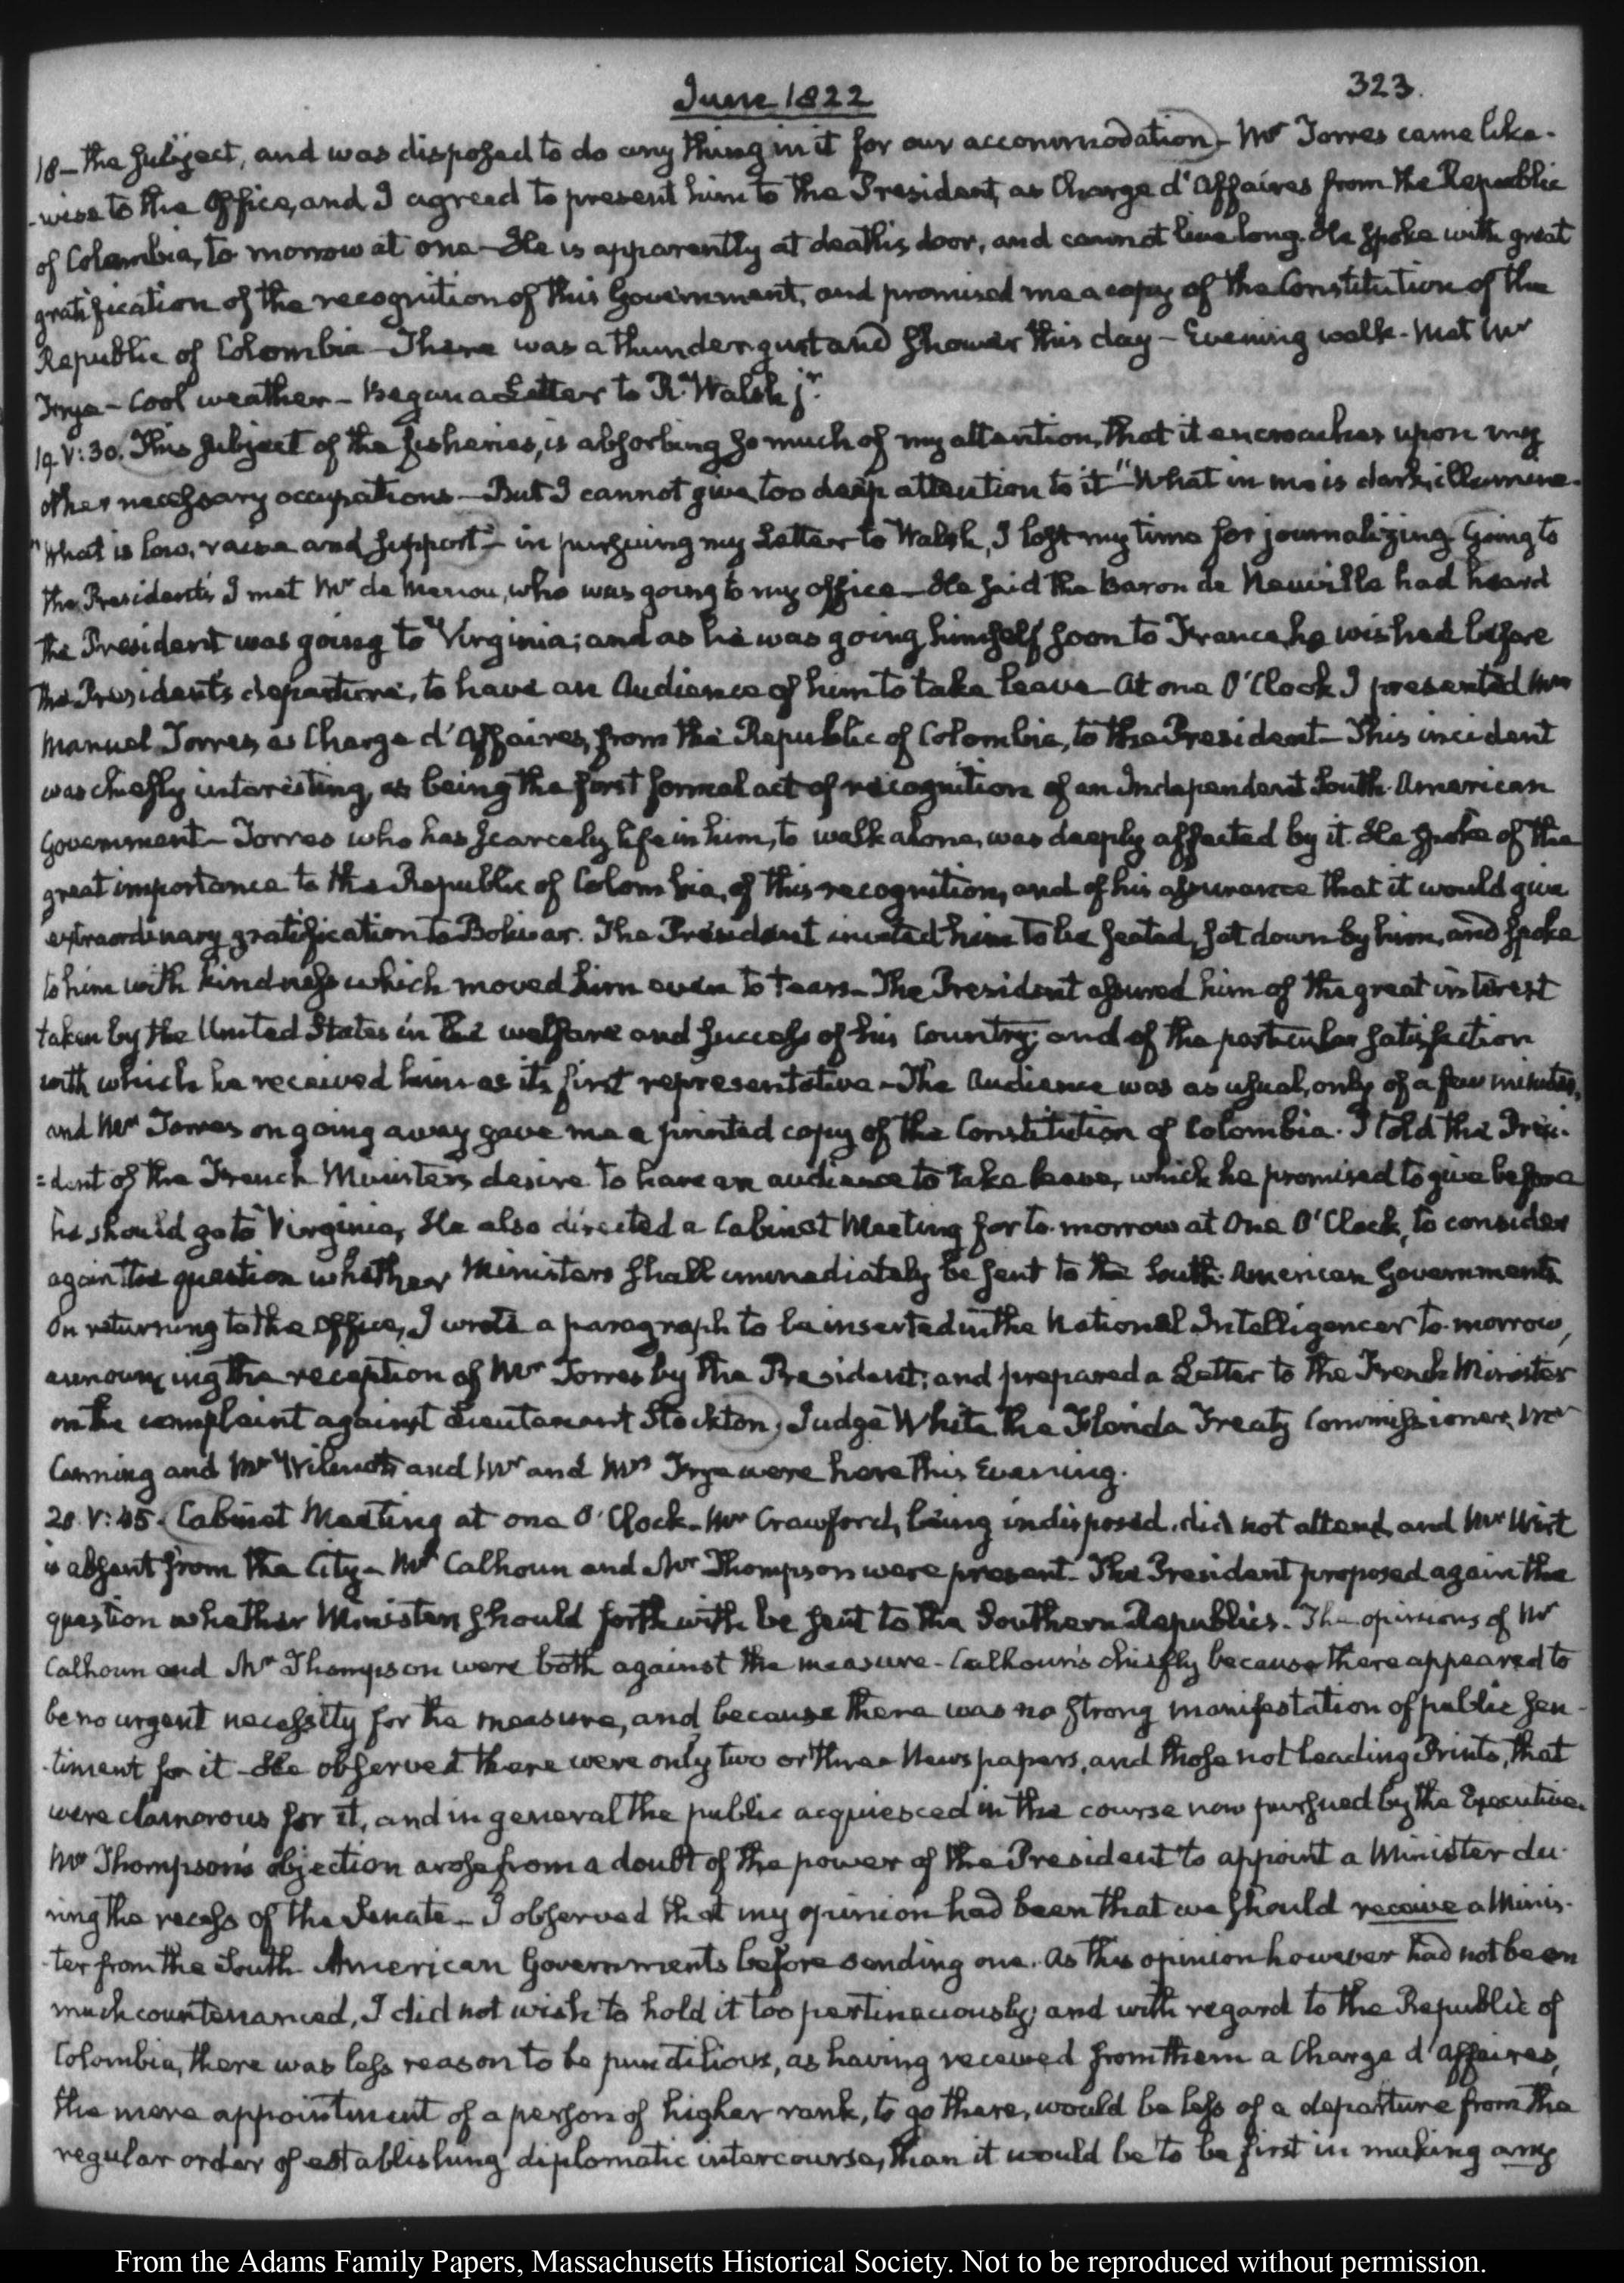 June 1822
323.
18 – the subject, and was disposed to do any thing in it for our accommodation – Mr Torres came like-
-wise to the Office, and I agreed to present him to the President, as Charge d'Affaires from the Republic
of Colombia, to morrow at one – He is apparently at death's door, and cannot live long. He spoke with great
gratification of the recognition of this Government, and promised me a copy of the Constitution of the
Republic of Colombia – There was a thunder gust and shower this day – Evening walk – Met Mr
Frye – Cool weather – Began a Letter to R. Walsh jr.
19. V:30. This subject of the fisheries, is absorbing so much of my attention, that it encroaches upon my
other necessary occupations – But I cannot give too deep attention to it – "What in me is dark, illumine –
"What is low, raise and support" – in pursuing my Letter to Walsh, I lost my time for journalizing. Going to
the President's I met Mr de Menou, who was going to my office – He said the Baron de Neuville had heard
the President was going to Virginia; and as he was going himself soon to France, he wished before
the President's departure, to have an Audience of him to take leave – At one O'Clock I presented Mr
Manuel Torres, as Charge d'Affaires, from the Republic of Colombia, to the President – This incident
was chiefly interesting, as being the first formal act of recognition of an Independent South-American
Government – Torres who has scarcely life in him, to walk alone, was deeply affected by it. He spoke of the
great importance to the Republic of Colombia, of this recognition, and of his assurance that it would give
extraordinary gratification to Bolivar. The President invited him to be seated, sat down by him, and spoke
to him with kindness which moved him even to tears – The President assured him of the great interest
taken by the United States in the welfare and success of his Country; and of the particular satisfaction
with which he received him as its first representative – The Audience was as usual, only of a few minutes,
and Mr Torres on going away gave me a printed copy of the Constitution of Colombia. I told the Presi-
=dent of the French Minister's desire to have an audience to take leave, which he promised to give before
he should go to Virginia, He also directed a Cabinet Meeting for to-morrow at One O'Clock, to consider
again the question whether Ministers shall immediately be sent to the South-American Governments
On returning to the Office, I wrote a paragraph to be inserted in the National Intelligencer to-morrow,
announcing the reception of Mr Torres by the President; and prepared a Letter to the French Minister
on the complaint against Lieutenant Stockton. Judge White the Florida Treaty Commissioner, Mr
Canning and Mr Wilmot and Mr and Mrs Frye were here this Evening.
20. V:45. Cabinet Meeting at one O'Clock – Mr Crawford, being indisposed, did not attend, and Mr Wirt
is absent from the City – Mr Calhoun and Mr Thompson were present – The President proposed again the
question whether Ministers should forthwith be sent to the Southern Republics – The opinions of Mr
Calhoun and Mr Thompson were both against the measure – Calhoun's chiefly because there appeared to
be no urgent necessity for the measure, and because there was no strong manifestation of public sen-
-timent for it – He observed there were only two or three Newspapers, and those not leading Prints, that
were clamorous for it, and in general the public acquiesced in the course now pursued by the Executive.
Mr Thompson's objection arose from a doubt of the power of the President to appoint a Minister du-
ring the recess of the Senate – I observed that my opinion had been that we should receive a Minis-
-ter from the South-American Governments before sending one. As this opinion however had not been
much countenanced, I did not wish to hold it too pertinaciously; and with regard to the Republic of
Colombia, there was less reason to be punctilious, as having received from them a Charge d'Affaires,
the mere appointment of a person of higher rank, to go there, would be less of a departure from the
regular order of establishing diplomatic intercourse, than it would be to be first in making any
From the Adams Family Papers, Massachusetts Historical Society. Not to be reproduced without permission.